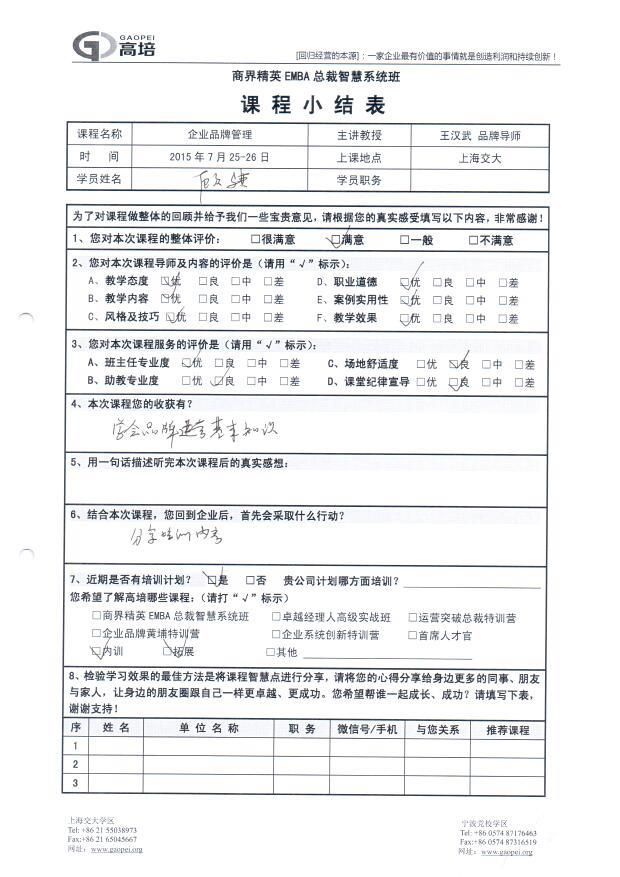 GAOPEI
高培
[回归经营的本源]：一家企业最有价值的事情就是创造利润和持续创新！
商界精英 EMBA 总裁智慧系统班
课程小结表
课程名称 企业品牌管理 主讲教授 王汉武 品牌导师
时 间 2015 年 7 月 25-26 日 上课地点 上海交大
学员姓名 学员职务
为了对课程做整体的回顾并给予我们一些宝贵意见，请根据您的真实感受填写以下内容，非常感谢！
1、您对本次课程的整体评价： □很满意 □满意 □一般 □不满意
2、您对本次课程导师及内容的评价是（请用“√”标示）：
A、教学态度 □优 □良 □中 □差 D、职业道德 □优 □良 □中 □差
B、教学内容 □优 □良 □中 □差 E、案例实用性 □优 □良 □中 □差
C、风格及技巧 □优 □良 □中 □差 F、教学效果 □优 □良 □中 □差
3、您对本次课程服务的评价是（请用“√”标示）：
A、班主任专业度 □优 □良 □中 □差 C、场地舒适度 □优 □良 □中 □差
B、助教专业度 □优 □良 □中 □差 D、课堂纪律宣导 □优 □良 □中 □差
4、本次课程您的收获有？
学会品牌运营基本知识
5、用一句话描述听完本次课程后的真实感想：
6、结合本次课程，您回到企业后，首先会采取什么行动？
分享培训内容
7、近期是否有培训计划？ □是 □否 贵公司计划哪方面培训？
您希望了解高培哪些课程：（请打“√”标示）
□商界精英 EMBA 总裁智慧系统班 □卓越经理人高级实战班 □运营突破总裁特训营
□企业品牌黄埔特训营 □企业系统创新特训营 □首席人才官
□内训 □拓展 □其他
8、检验学习效果的最佳方法是将课程智慧点进行分享，请将您的心得分享给身边更多的同事、朋友
与家人，让身边的朋友圈跟自己一样更卓越、更成功。您希望帮谁一起成长、成功？请填写下表，
谢谢支持！
序 姓 名 单 位 名 称 职 务 微信号/手机 与您关系 推荐课程
1
2
3
上海交大学区
Tel: +86 21 55038973
Fax:+86 21 65045667
网址：www.gaopei.org
宁波党校学区
Tel: +86 0574 87176463
Fax:+86 0574 87316519
网址：www.gaopei.org